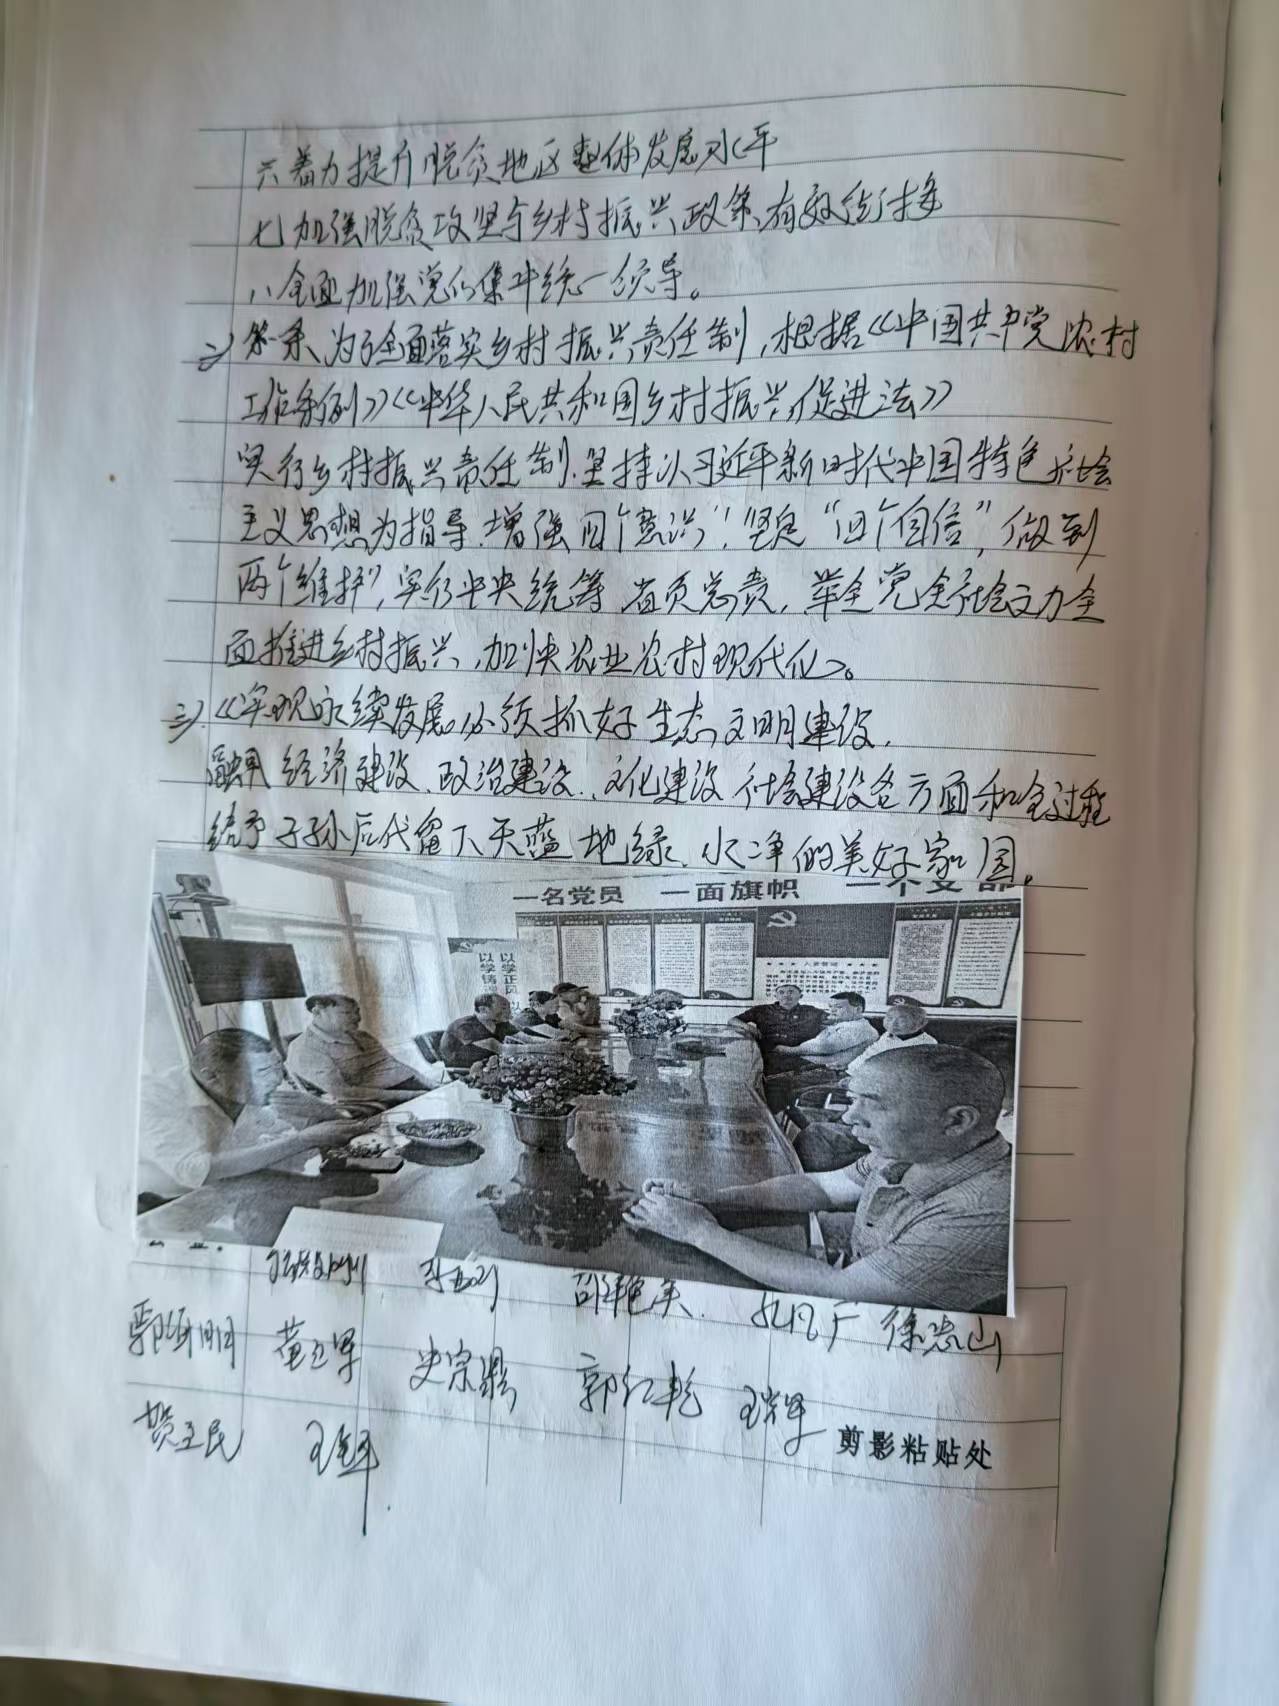 六着力提升脱贫地区整体发展水平
七加强脱贫攻坚与乡村振兴政策有效衔接
八全面加强党的集中统一领导。
二、第一条为了全面落实乡村振兴责任制,根据《中国共产党农村
工作条例》《中华人民共和国乡村振兴促进法》
实行乡村振兴责任制.坚持以习近平新时代中国特色社会
主义思想为指导.增强四个意识",坚定"四个自信",做到
两个维护",实行中央统筹 省负总责,举全党全社会之力全
面推进乡村振兴,加快农业农村现代化。
三、《实现永续发展必须抓好生态文明建设.
融 经济建设、政治建设、文化建设 社会建设各方面和全过程
给予子孙后代留下天蓝 地绿、水净的美好家园。
一名党员 一面旗帜 一个支部
以学铸魂
以学正风
入党誓词
徐志山
史宗鼎 郭红乾
剪影粘贴处